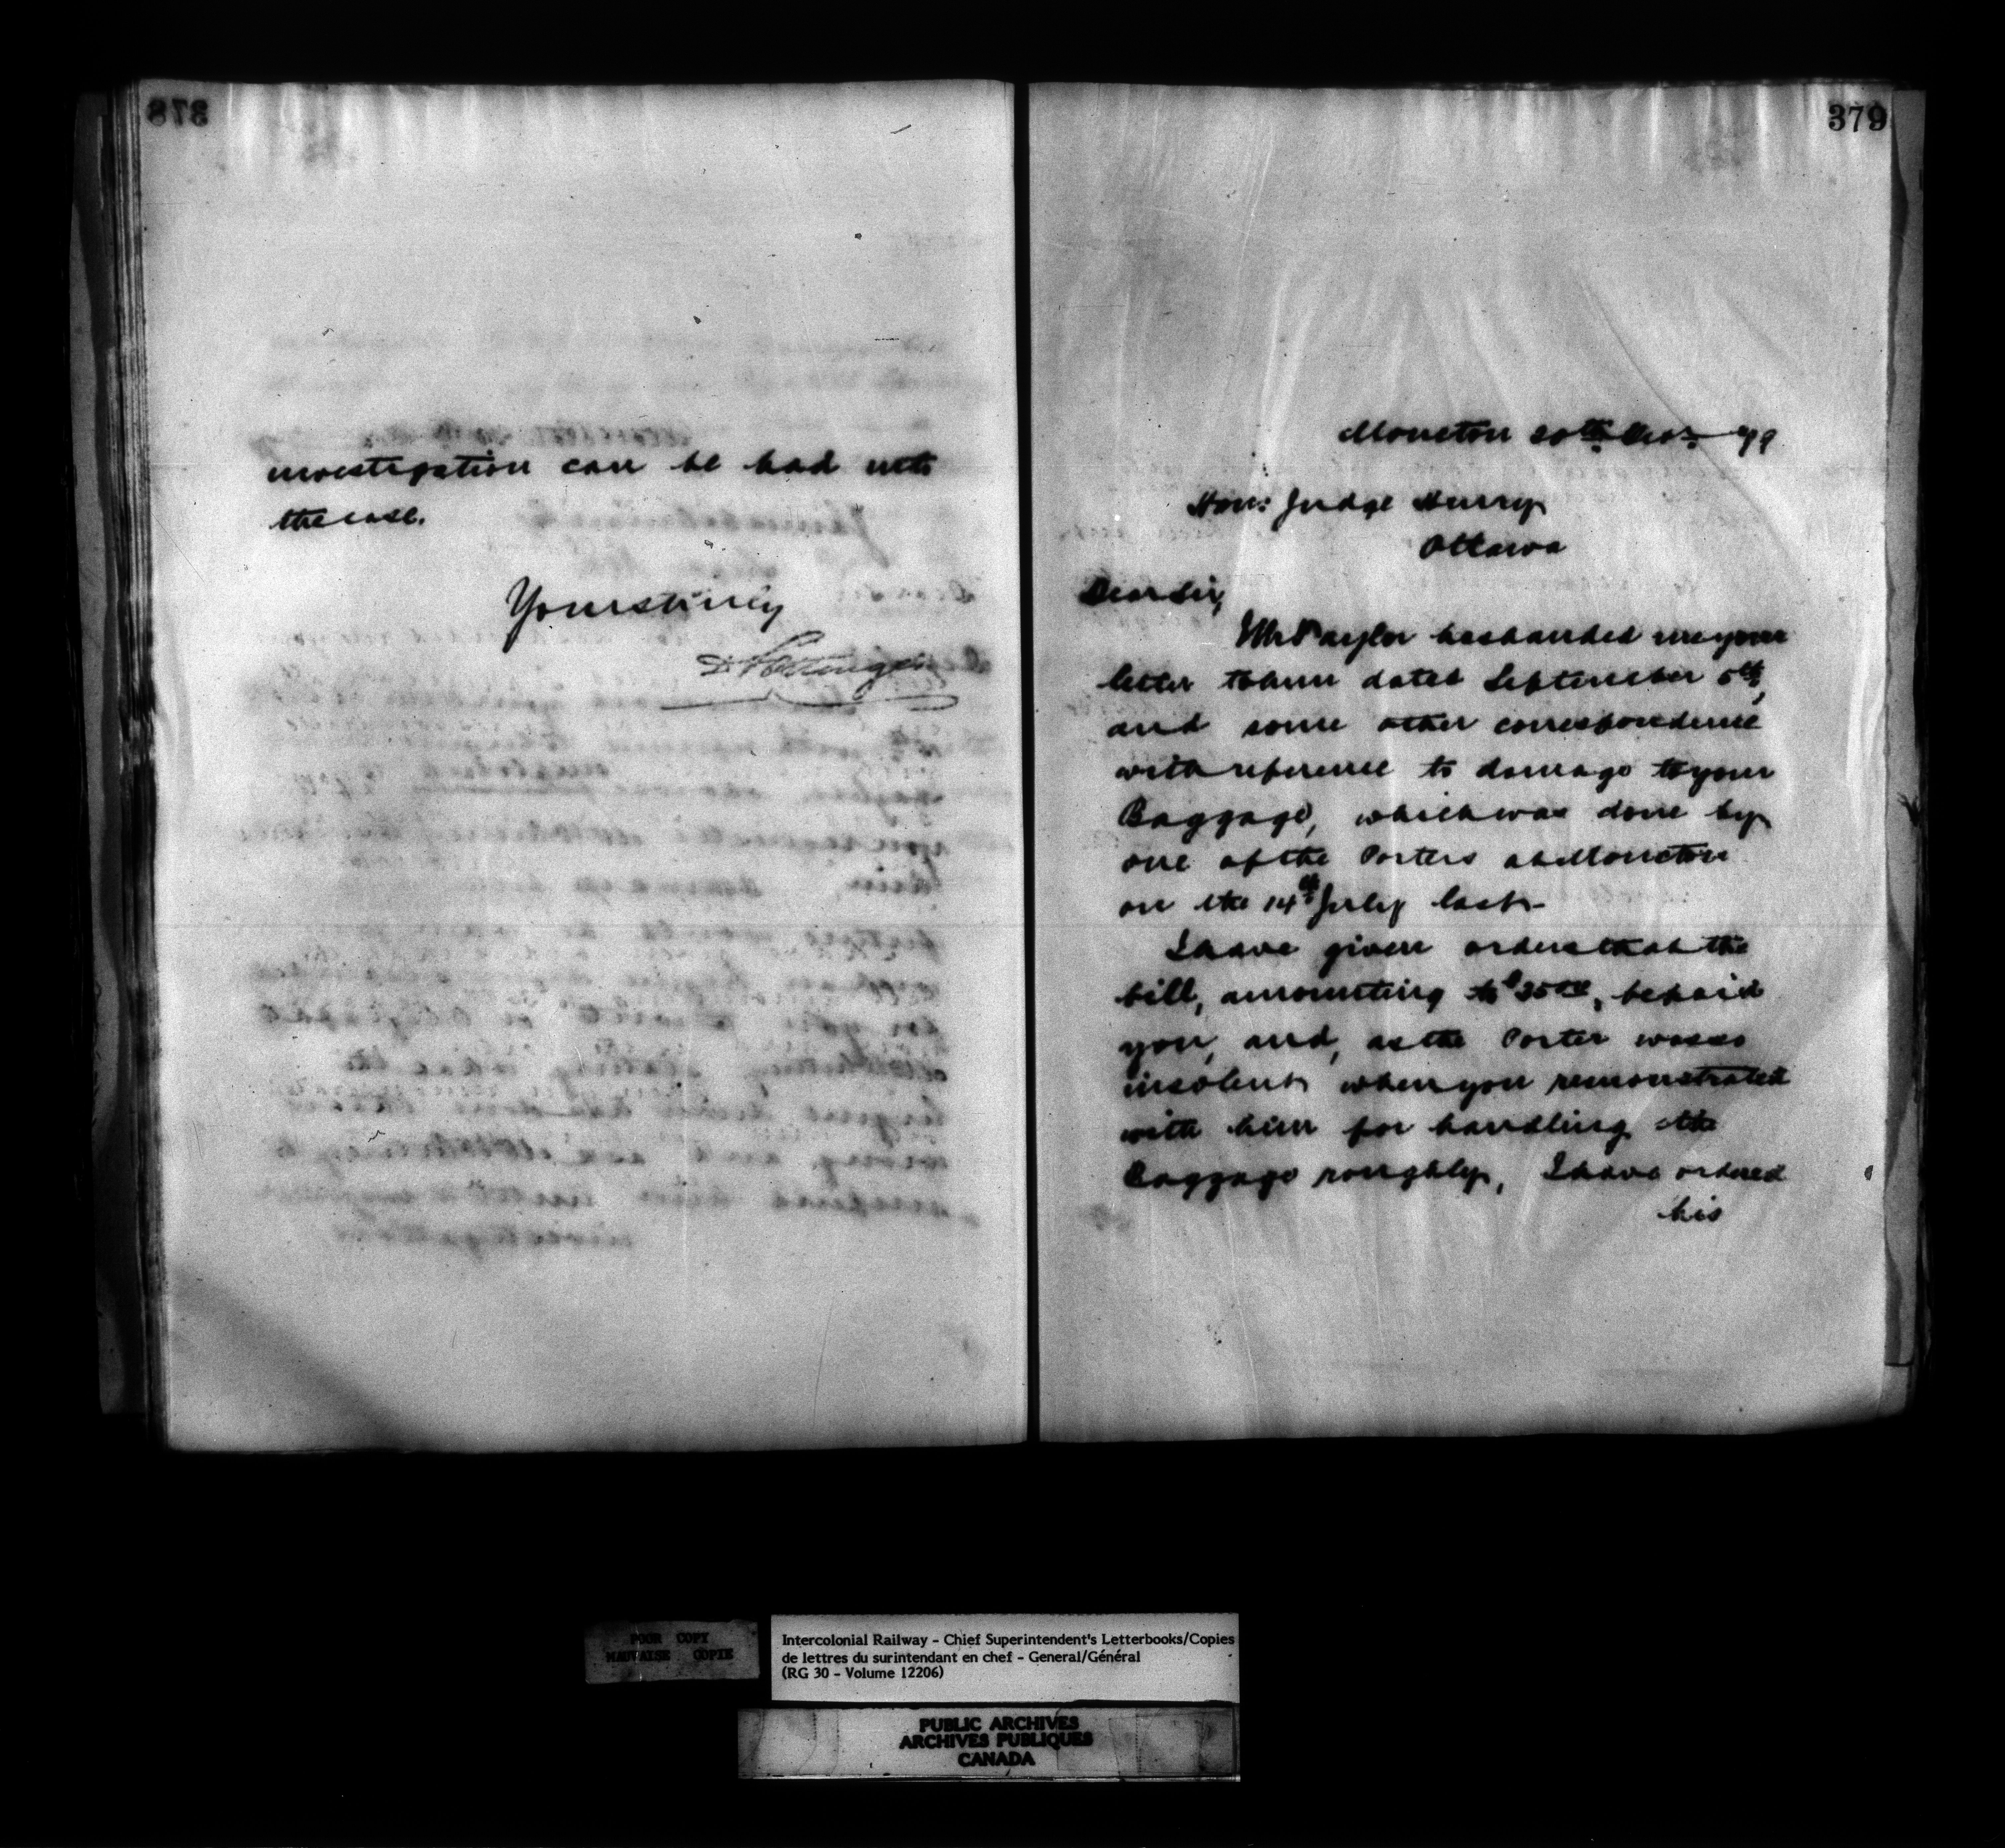 378
investigation can be had into
the case.
Yours truly
D Pottinger
379
Moncton 20th Nov. 79
Hon: Judge Henry
Ottawa
Dear Sir,
Mr Taylor has handed me your
letter to him dated September 5th,
and some other correspondence
with reference to damage to your
Baggage, which was done by
one of the Porters at Moncton
on the 14th July last.
I have given orders that the
bill, amounting to be paid
you, and, as the Porter was so
insolent when you remonstrated
with him for handling the
Baggage roughly, I have ordered
his
POOR COPY
MAUVAISE COPIE
Intercolonial Railway - Chief Superintendent's Letterbooks/Copies
de lettres du surintendant en chef - General/Général
(RG 30 - Volume 12206)
PUBLIC ARCHIVES
ARCHIVES PUBLIQUES
CANADA